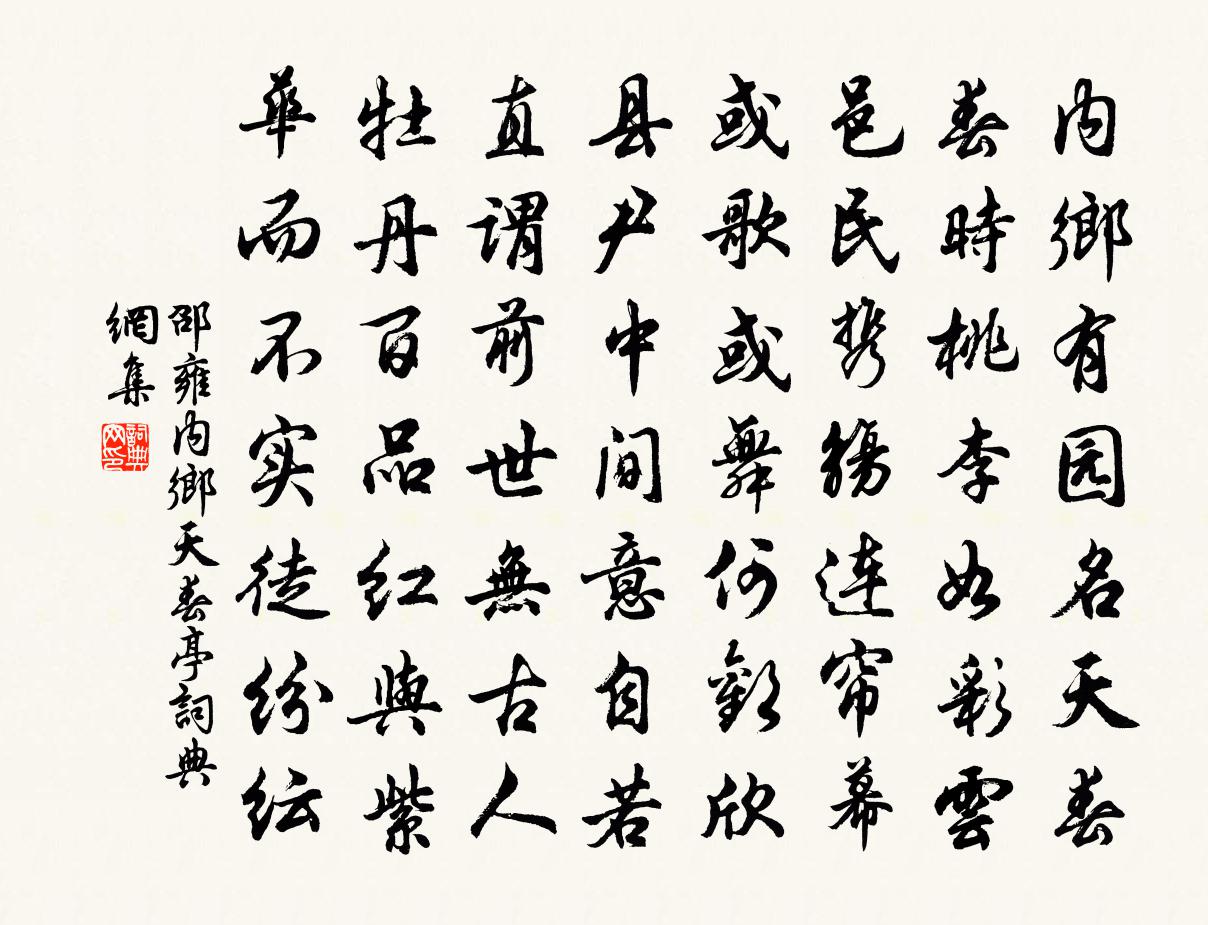 内鄉有园名天春
春時桃李如彩雲
邑民携觴連帘幕
或歌或舞何歡欣
县尹中间意自若
直谓前世無古人
牡丹百品红與紫
華而不实徒纷纭
邵雍内鄉天春亭詞典
網集
詞典网印